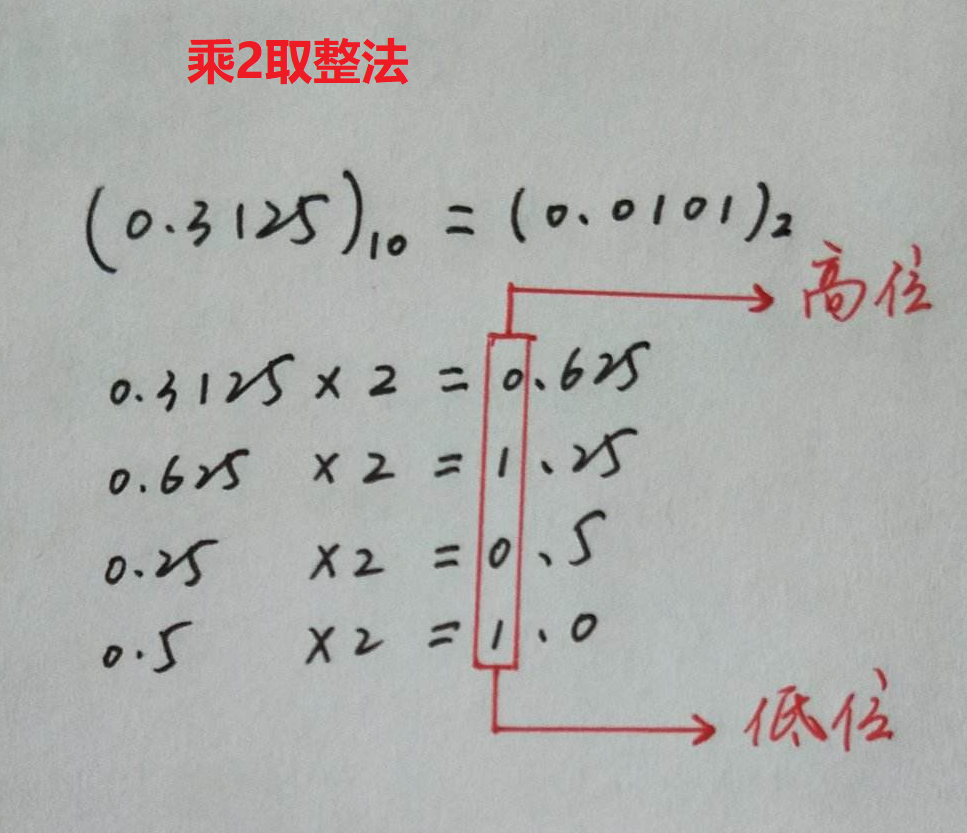 乘2取整法
(0.3125)₁₀ = (0.0101)₂
高位
0.3125 × 2 = 0.625
0.625 × 2 = 1.25
0.25 × 2 = 0.5
0.5 × 2 = 1.0
低位